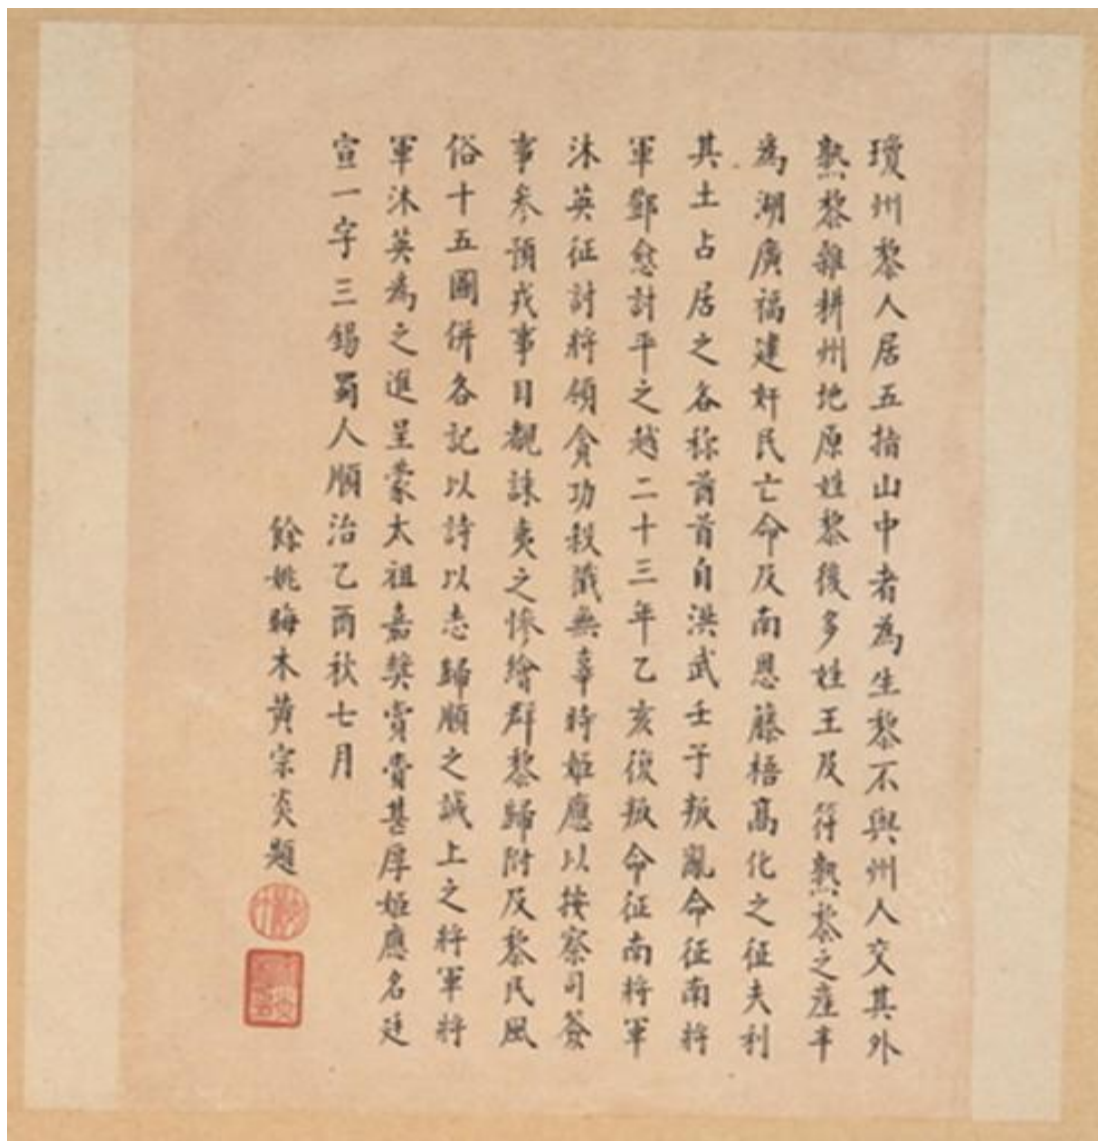 瓊州黎人居五指山中者為生黎不與州人交其外
熟黎雜耕州地原姓黎後多姓王及符熟黎之產半
為湖廣福建奸民亡命及南恩藤梧高化之征夫利
其土占居之各稱酋首自洪武壬子叛亂命征南將
軍鄧愈討平之越二十三年乙亥復叛命征南將軍
沐英征討將領貪功殺戮無辜時姬應以按察司簽
事參預戎事目覩誅夷之慘繪群黎歸附及黎民風
俗十五圖併各記以詩以志歸順之誠上之將軍將
軍沐英為之進呈蒙太祖嘉獎賞賚甚厚姬應名廷
宣一字三錫蜀人順治乙酉秋七月
餘姚晦木黃宗炎題